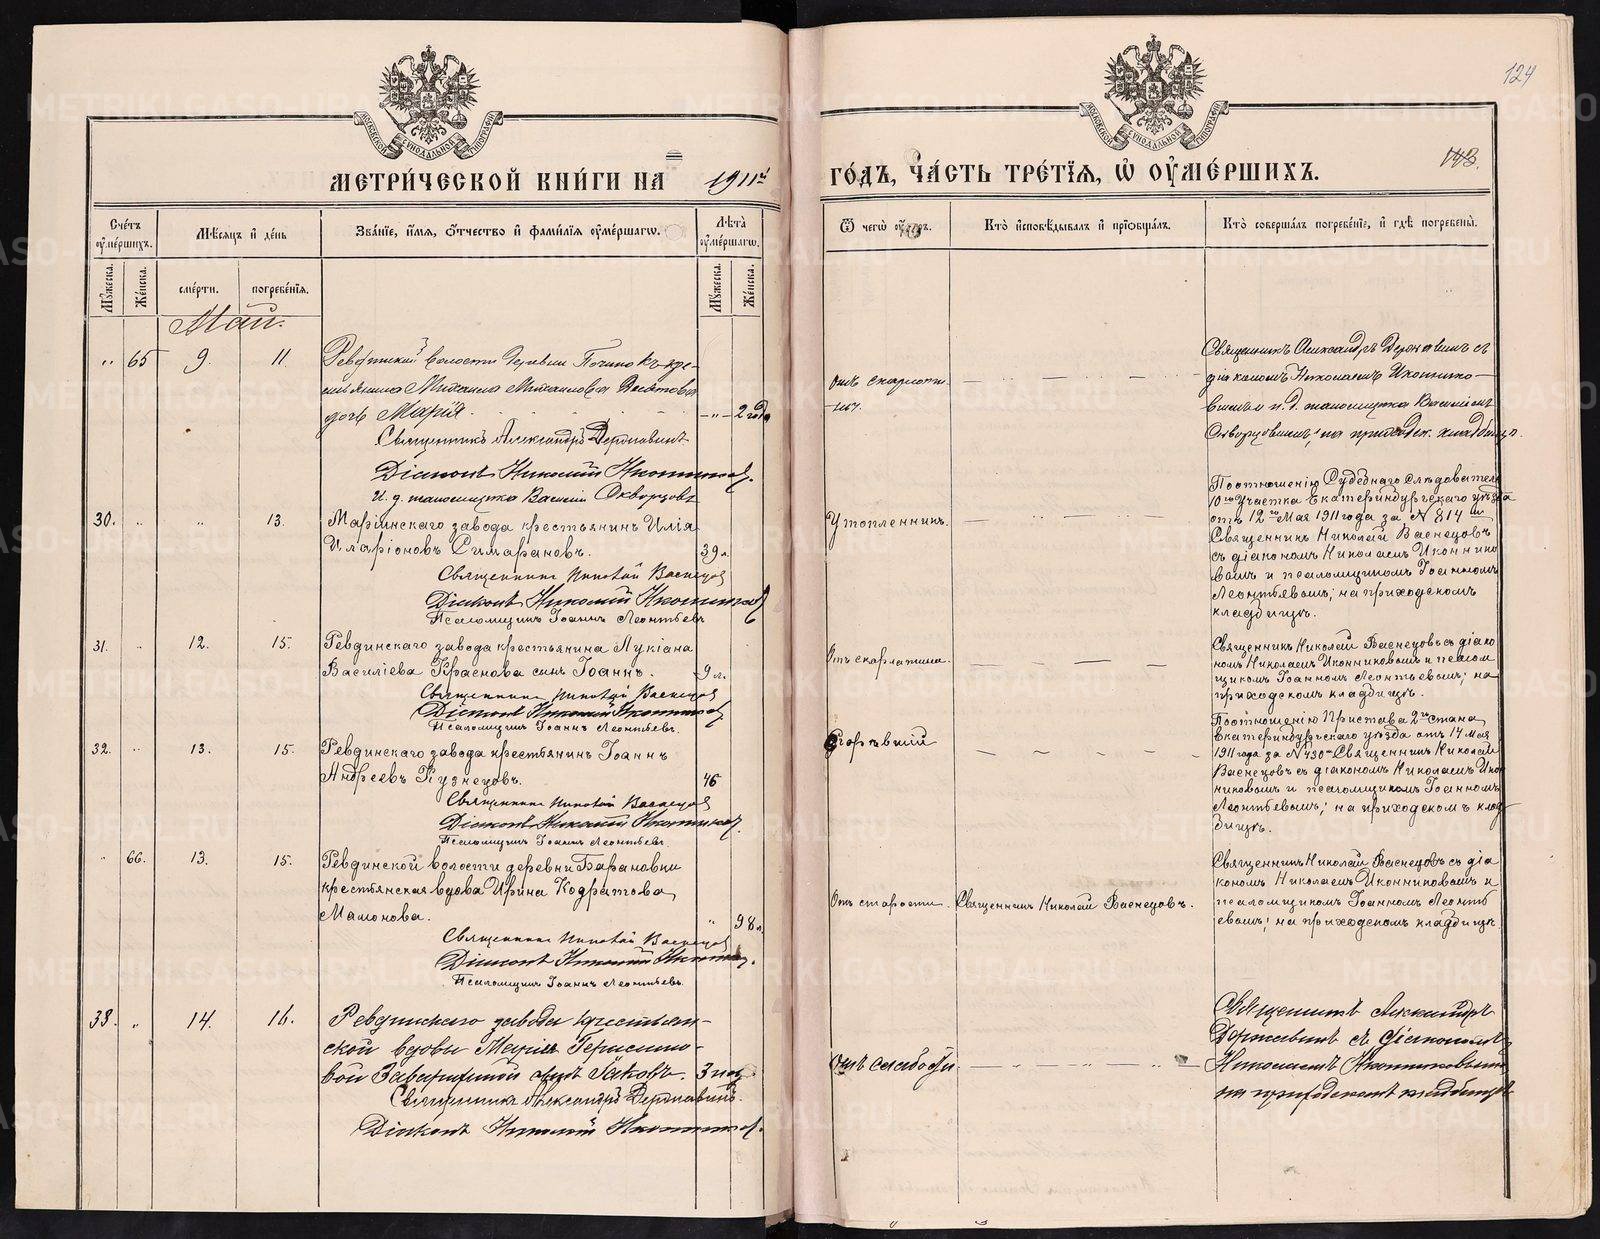 124
143.
МЕТРИ́ЧЕСКОЙ КНИ́ГИ НА 1911й
ГО́ДЪ, ЧА́СТЬ ТРЕ́ТІѦ, Ѡ҆ ОУ҆МЕ́РШИХЪ.
Сче́тъ оу҆ме́ршихъ.
Мѣ́сяцъ и҆ де́нь
Зва́нїе, и҆́мѧ, ѻ҆́тчество и҆ фами́лїѧ оу҆ме́ршагѡ.
Лѣ́та̀ оу҆ме́ршагѡ.
Мꙋ́жеска.
Же́нска.
сме́рти.
погребе́нїѧ.
Мꙋ́жеска.
Же́нска.
Ѿ чегѡ̀ оу҆́меръ.
Кто̀ и҆сповѣ́дывалъ и҆ прїѻбща́лъ.
Кто̀ соверша́лъ погребе́нїе, и҆ гдѣ̀ погребены̀.
Май.
" 65 9. 11.
Ревдинской волости деревни Починокъ кре-
стьянина Михаила Михаилова Десятова
дочь Марія. - " - 2 года
Священникъ Александръ Державинъ
Діаконъ Николай Иконниковъ.
И. д. псаломщика Василій Скворцовъ
Отъ скарлати-
ны.
Священникъ Александръ Державинъ съ
діакономъ Николаемъ Иконнико-
вымъ и и. д. псаломщика Василіемъ
Скворцовымъ, на приходск. кладбищѣ.
30. " " 13.
Маріинскаго завода крестьянинъ Илія
Иларіоновъ Симарановъ. 39 л.
Священникъ Николай Васнецовъ
Діаконъ Николай Иконниковъ
Псаломщикъ Іоаннъ Леонтьевъ
Утопленникъ.
По отношенію Судебнаго Слѣдователя
10го участка Екатеринбургскаго уѣзда
отъ 12го Мая 1911 года за № 814м
Священникъ Николай Васнецовъ
съ діакономъ Николаемъ Иконнико
вымъ и псаломщикомъ Іоанномъ
Леонтьевымъ; на приходскомъ
кладбищѣ.
31. " 12. 15.
Ревдинскаго завода крестьянина Лукіана
Василіева Краснова сынъ Іоаннъ. 9 л.
Священникъ Николай Васнецовъ
Діаконъ Николай Иконниковъ
Псаломщикъ Іоаннъ Леонтьевъ.
Отъ скарлатины.
Священникъ Николай Васнецовъ съ діако
номъ Николаемъ Иконниковымъ и псалом
щикомъ Іоанномъ Леонтьевымъ; на
приходскомъ кладбищѣ.
32. " 13. 15.
Ревдинскаго завода крестьянинъ Іоаннъ
Андреевъ Кузнецовъ. 46
Священникъ Николай Васнецовъ
Діаконъ Николай Иконниковъ.
Псаломщикъ Іоаннъ Леонтьевъ.
Сгорѣвшій
По отношенію Пристава 2го стана
Екатеринбургскаго уѣзда отъ 14 Мая
1911 года за № 430м Священникъ Николай
Васнецовъ съ діакономъ Николаемъ Икон
никовымъ и псаломщикомъ Іоанномъ
Леонтьевымъ; на приходскомъ клад
бищѣ.
" 66. 13. 15.
Ревдинской волости деревни Барановки
крестьянская вдова Ирина Кодратова
Мамонова. " 98 л.
Священникъ Николай Васнецовъ
Діаконъ Николай Иконниковъ.
Псаломщикъ Іоаннъ Леонтьевъ.
Отъ старости.
Священникъ Николай Васнецовъ.
Священникъ Николай Васнецовъ съ діа
кономъ Николаемъ Иконниковымъ и
псаломщикомъ Іоанномъ Леонть
евымъ; на приходскомъ кладбищѣ.
33. " 14. 16.
Ревдинскаго завода крестьян-
ской вдовы Маріи Герасимо-
вой сынъ Іаковъ. 3
Священникъ Александръ Державинъ.
Діаконъ Николай Иконниковъ.
Отъ слабости
Священникъ Александръ
Державинъ съ діакономъ
Николаемъ Иконниковымъ
на приходскомъ кладбищѣ
METRIKI.GASO-URAL.RU